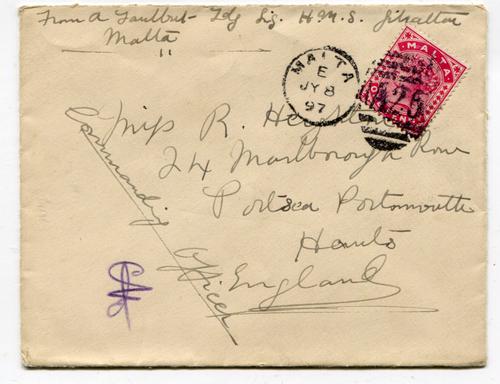 From A Faulbut- Ldg Sig. H.M.S. Gibraltar
Malta
MALTA
E
JY 8
97
MALTA
A25
Miss R.
24 Marlborough Row
Portsea Portsmouth
Hants
England
Commanding Officer